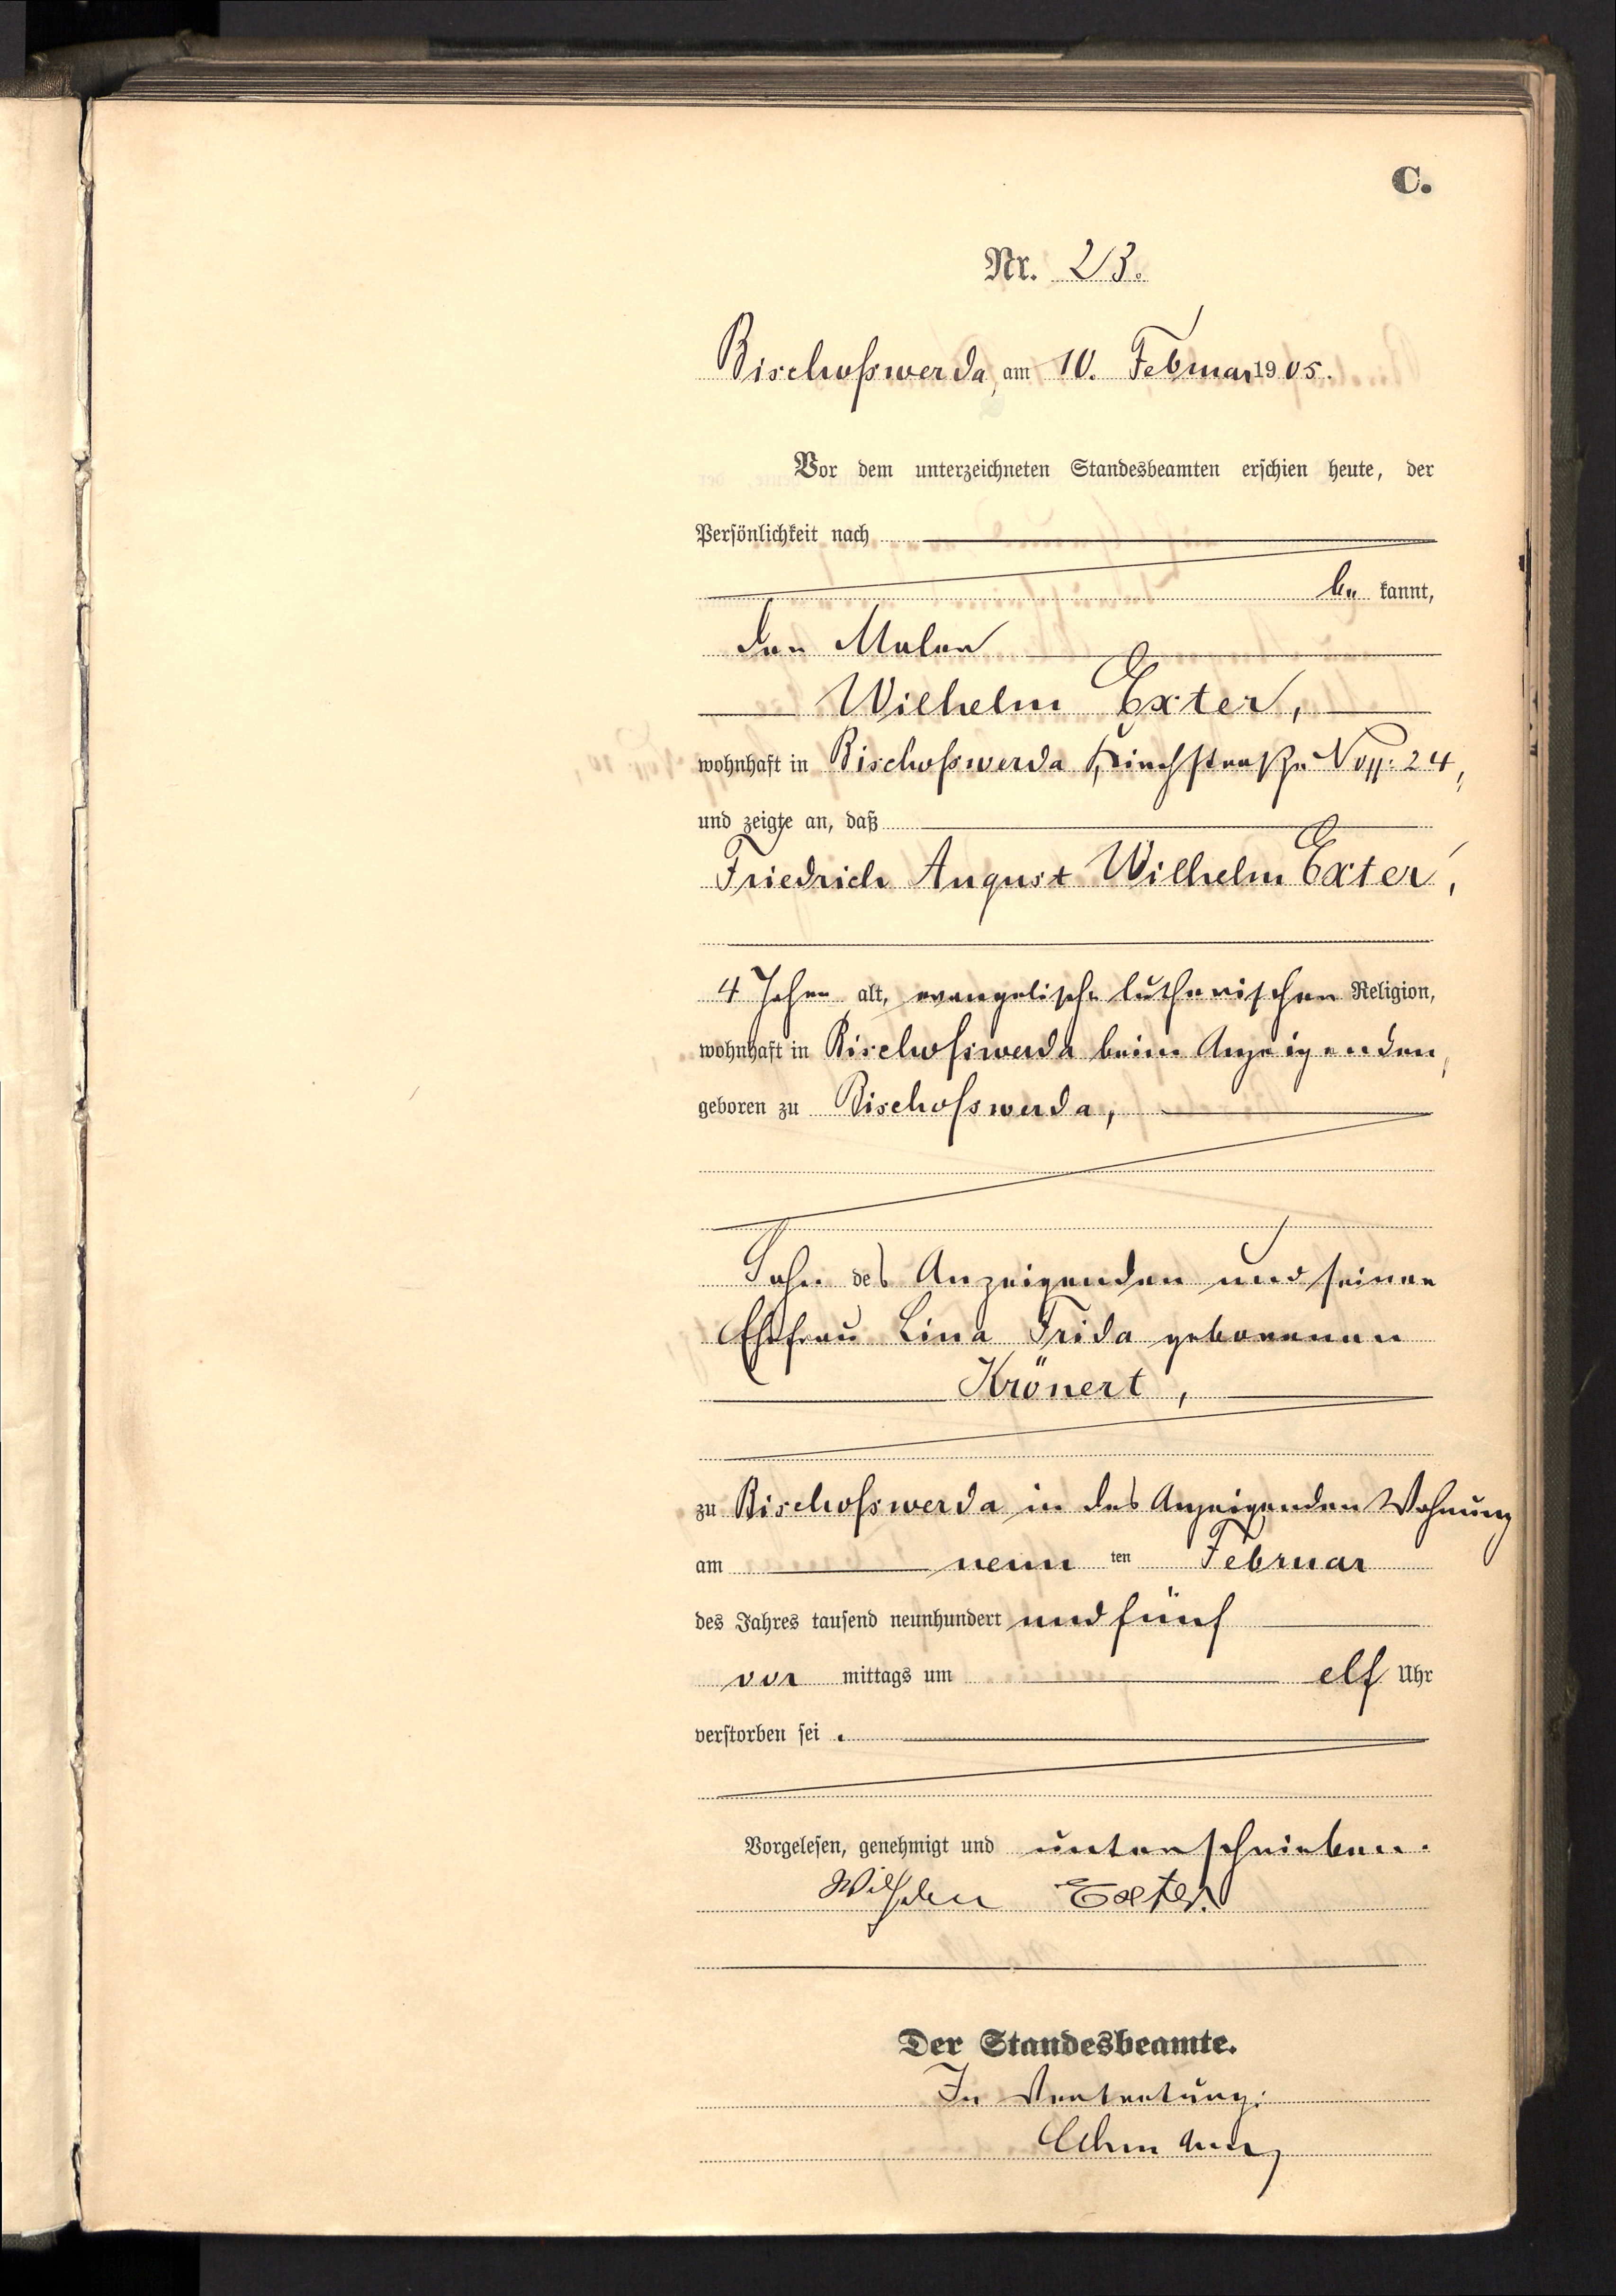 C.
Nr. 23.
Bischofswerda, am 10. Februar 1905.
Vor dem unterzeichneten Standesbeamten erschien heute, der
Persönlichkeit nach
be kannt,
der Maler
Wilhelm Exter,
wohnhaft in Bischofswerda Kirchstraße No 24,
und zeigte an, daß
Friedrich August Wilhelm Exter,
4 Jahre alt, evangelisch lutherischer Religion,
wohnhaft in Bischofswerda beim Anzeigenden,
geboren zu Bischofswerda,
Sohn des Anzeigenden und seiner
Ehefrau Lina Frida geborenen
Krönert,
zu Bischofswerda in des Anzeigenden Wohnung
am neun ten Februar
des Jahres tausend neunhundert und fünf
vor mittags um elf Uhr
verstorben sei.
Vorgelesen, genehmigt und unterschrieben.
Wilhelm Exter.
Der Standesbeamte.
In Vertretung: